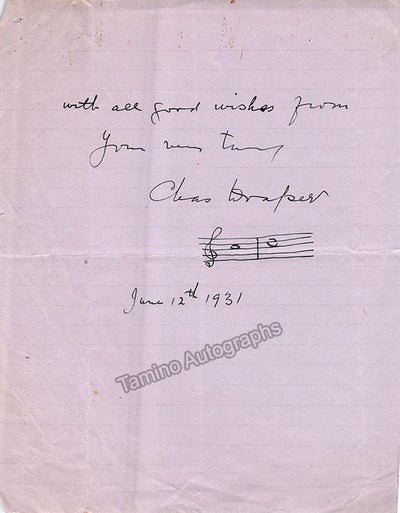 with all good wishes from
Yours very truly
Chas Draper
June 12th 1931
Tamino Autographs